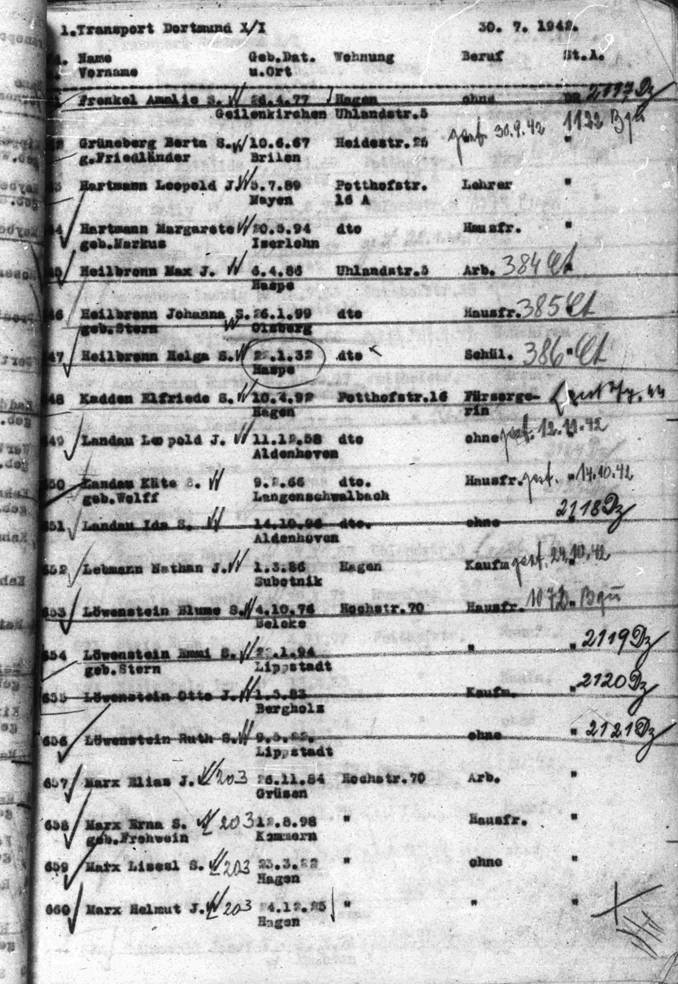 1.Transport Dortmund X/I 30. 7. 1942.
Name Geb.Dat. Wohnung Beruf St.A.
Vorname u.Ort
Frenkel Amalie S. 26.4.77 Hagen ohne 2117 Dz
Geilenkirchen Uhlandstr.5
Grüneberg Berta S. 10.6.67 Heidestr.26 gest. 30.9.42 1122 Bgü
g.Friedländer Brilon "
Hartmann Leopold J. 5.7.89 Potthofstr. Lehrer "
Mayen 16 A
Hartmann Margarete 20.5.94 dto Hausfr. "
geb.Markus Iserlohn
Heilbronn Max J. 6.4.86 Uhlandstr.5 Arb. 384 Et
Haspe
46 Heilbronn Johanna S. 26.1.99 dto Hausfr. 385 Et
geb.Stern Olsberg
47 Heilbronn Helga S. 22.1.32 dto Schül. 386 Et
Haspe
48 Kadden Elfriede S. 10.4.92 Potthofstr.16 Fürsorge-
Hagen rin
49 Landau Leopold J. 11.12.58 dto ohne gest. 12.11.42
Aldenhoven
50 Landau Käte S. 9.2.66 dto. Hausfr. gest. 14.10.42
geb.Wolff Langenschwalbach
51 Landau Ida S. 14.10.96 dto. ohne 2118 Dz
Aldenhoven
652 Lebmann Nathan J. 1.3.86 Hagen Kaufm gest. 24.10.42
Subotnik
653 Löwenstein Blume S. 4.10.76 Hochstr.70 Hausfr. 1072 Bgü
Belcke
654 Löwenstein Emmi S. 22.1.94 " " 2119 Dz
geb.Stern Lippstadt
655 Löwenstein Otto J. 1.3.83 Kaufm. 2120 Dz
Bergholz
656 Löwenstein Ruth S. 9.5.22. ohne " 2121 Dz
Lippstadt
657 Marx Elias J. 203 26.11.84 Hochstr.70 Arb. "
Grüsen
658 Marx Erna S. 203 12.8.98 " Hausfr. "
geb.Frohwein Kommern
659 Marx Liesel S. 203 23.3.22 " ohne "
Hagen
660 Marx Helmut J. 203 24.12.25 " " "
Hagen